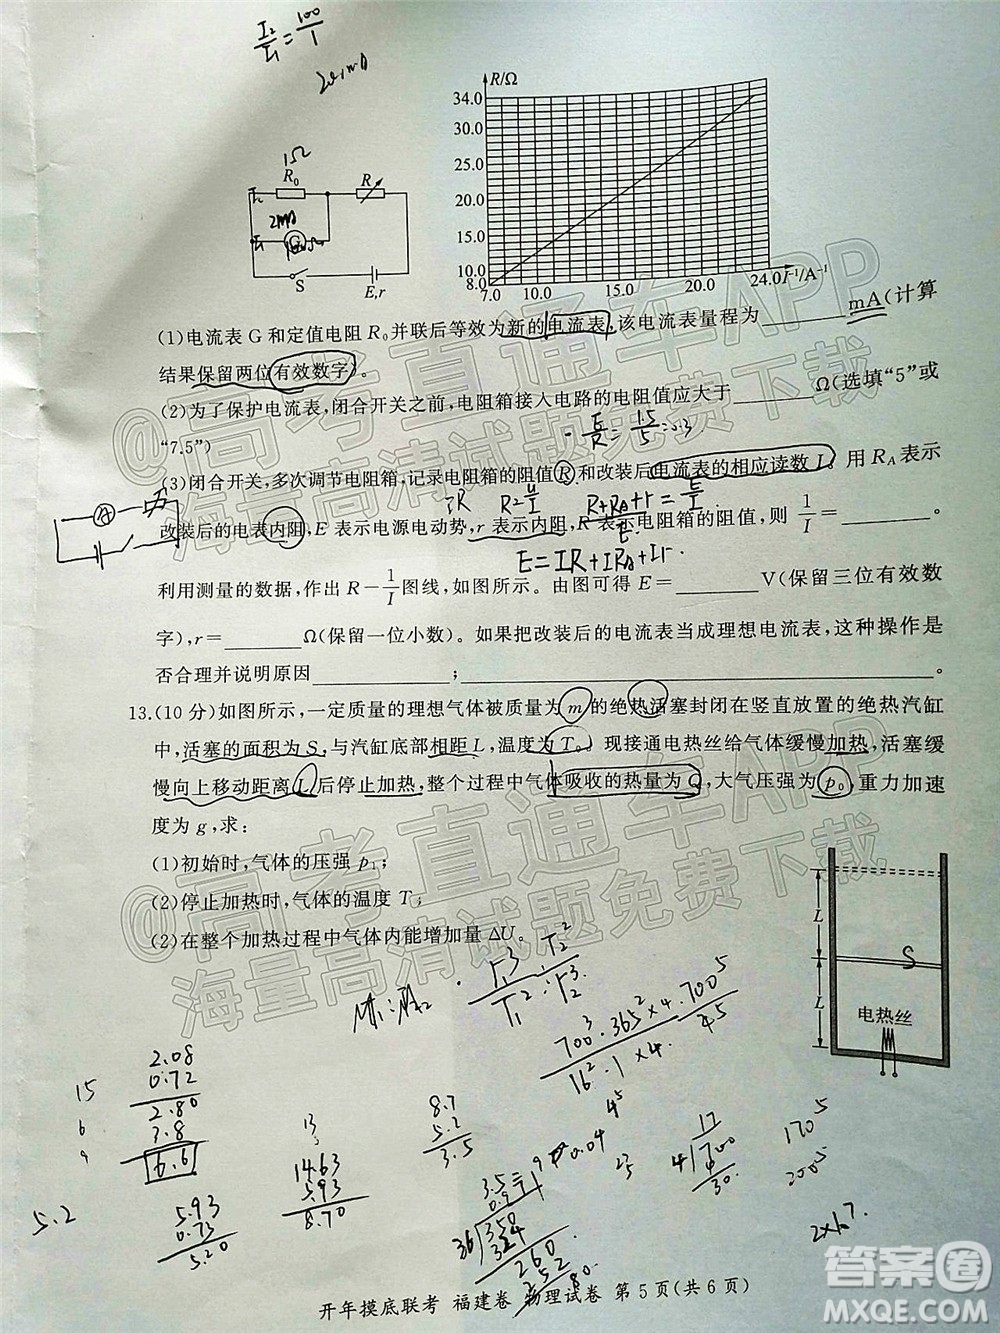 I₂/I₁=100/1
R/Ω
34.0
30.0
25.0
20.0
15.0
10.0
8.0
7.0 10.0 15.0 20.0 24.0 I⁻¹/A⁻¹
1Ω
R₀ R
2mA
I₁ G
S E,r
(1)电流表 G 和定值电阻 R₀ 并联后等效为新的电流表,该电流表量程为______mA(计算
结果保留两位有效数字)。
(2)为了保护电流表,闭合开关之前,电阻箱接入电路的电阻值应大于______Ω(选填“5”或
“7.5”)
E/R=1.5/5=0.3
(3)闭合开关,多次调节电阻箱,记录电阻箱的阻值 R 和改装后电流表的相应读数 I。用 R_A 表示
R=U/I R+R_A+r=E/I
改装后的电表内阻,E 表示电源电动势,r 表示内阻,R 表示电阻箱的阻值,则 1/I=______。
E=IR+IR_A+Ir.
利用测量的数据,作出 R－1/I 图线,如图所示。由图可得 E=______V(保留三位有效数
字),r=______Ω(保留一位小数)。如果把改装后的电流表当成理想电流表,这种操作是
否合理并说明原因______;______。
13.(10 分)如图所示,一定质量的理想气体被质量为 m 的绝热活塞封闭在竖直放置的绝热汽缸
中,活塞的面积为 S,与汽缸底部相距 L,温度为 T₀。现接通电热丝给气体缓慢加热,活塞缓
慢向上移动距离 L 后停止加热,整个过程中气体吸收的热量为 Q,大气压强为 p₀,重力加速
度为 g,求:
(1)初始时,气体的压强 p₁;
(2)停止加热时,气体的温度 T;
(2)在整个加热过程中气体内能增加量 ΔU。
L
S
L
电热丝
r₁³/T₁² : r₂³/T₂²
700³·365²×4·700⁵
16²·1×4. 45
15
6
9
2.08
0.72
2.80
3.8
6.6
5.2
5.93
0.73
5.20
14.63
5.93
8.70
8.7
5.2
3.5
36 350
324
260
252
80
17
4 700
30.
170⁵
200⁵
2×67.
@高考直通车APP
海量高清试题免费下载
@高考直通车APP
海量高清试题免费下载
答案圈
MXQE.COM
开年摸底联考 福建卷 物理试卷 第 5 页(共 6 页)